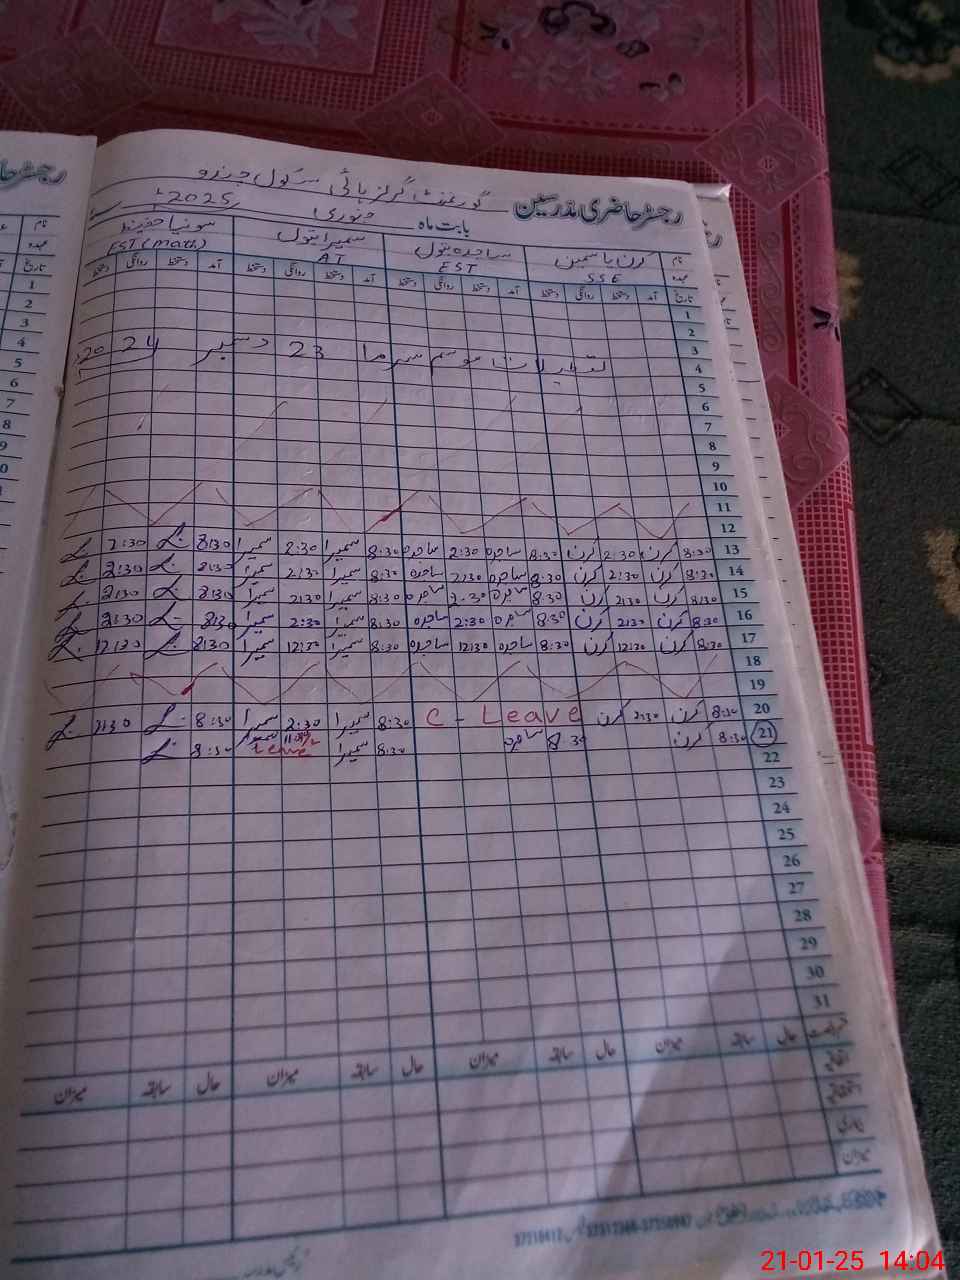 رجسٹر حاضری مدرسین گورنمنٹ گرلز ہائی سکول
بابت ماہ جنوری 2025ء
نام کرن یاسمین ساجدہ بتول سمیرا بتول سونیا حفیظ
عہدہ SSE EST AT EST (Math)
تاریخ آمد دستخط روانگی دستخط آمد دستخط روانگی دستخط آمد دستخط روانگی دستخط آمد دستخط روانگی دستخط
1
2
3
4 تعطیلات موسم سرما 23 دسمبر 2024
5
6
7
8
9
10
11
12
13 8:30 کرن 2:30 کرن 8:30 ساجدہ 2:30 ساجدہ 8:30 سمیرا 2:30 سمیرا 8:30 2:30
14 8:30 کرن 2:30 کرن 8:30 ساجدہ 2:30 ساجدہ 8:30 سمیرا 2:30 سمیرا 8:30 2:30
15 8:30 کرن 2:30 کرن 8:30 ساجدہ 2:30 ساجدہ 8:30 سمیرا 2:30 سمیرا 8:30 2:30
16 8:30 کرن 2:30 کرن 8:30 ساجدہ 2:30 ساجدہ 8:30 سمیرا 2:30 سمیرا 8:30 2:30
17 8:30 کرن 12:30 کرن 8:30 ساجدہ 12:30 ساجدہ 8:30 سمیرا 12:30 سمیرا 8:30 12:30
18
19
20 8:30 کرن 2:30 کرن C - Leave 8:30 سمیرا 2:30 سمیرا 8:30 2:30
21 8:30 کرن 8:30 ساجدہ 8:30 سمیرا Leave سمیرا 8:30
22
23
24
25
26
27
28
29
30
31
حال سابقہ میزان حال سابقہ میزان حال سابقہ میزان
میزان
21-01-25 14:04